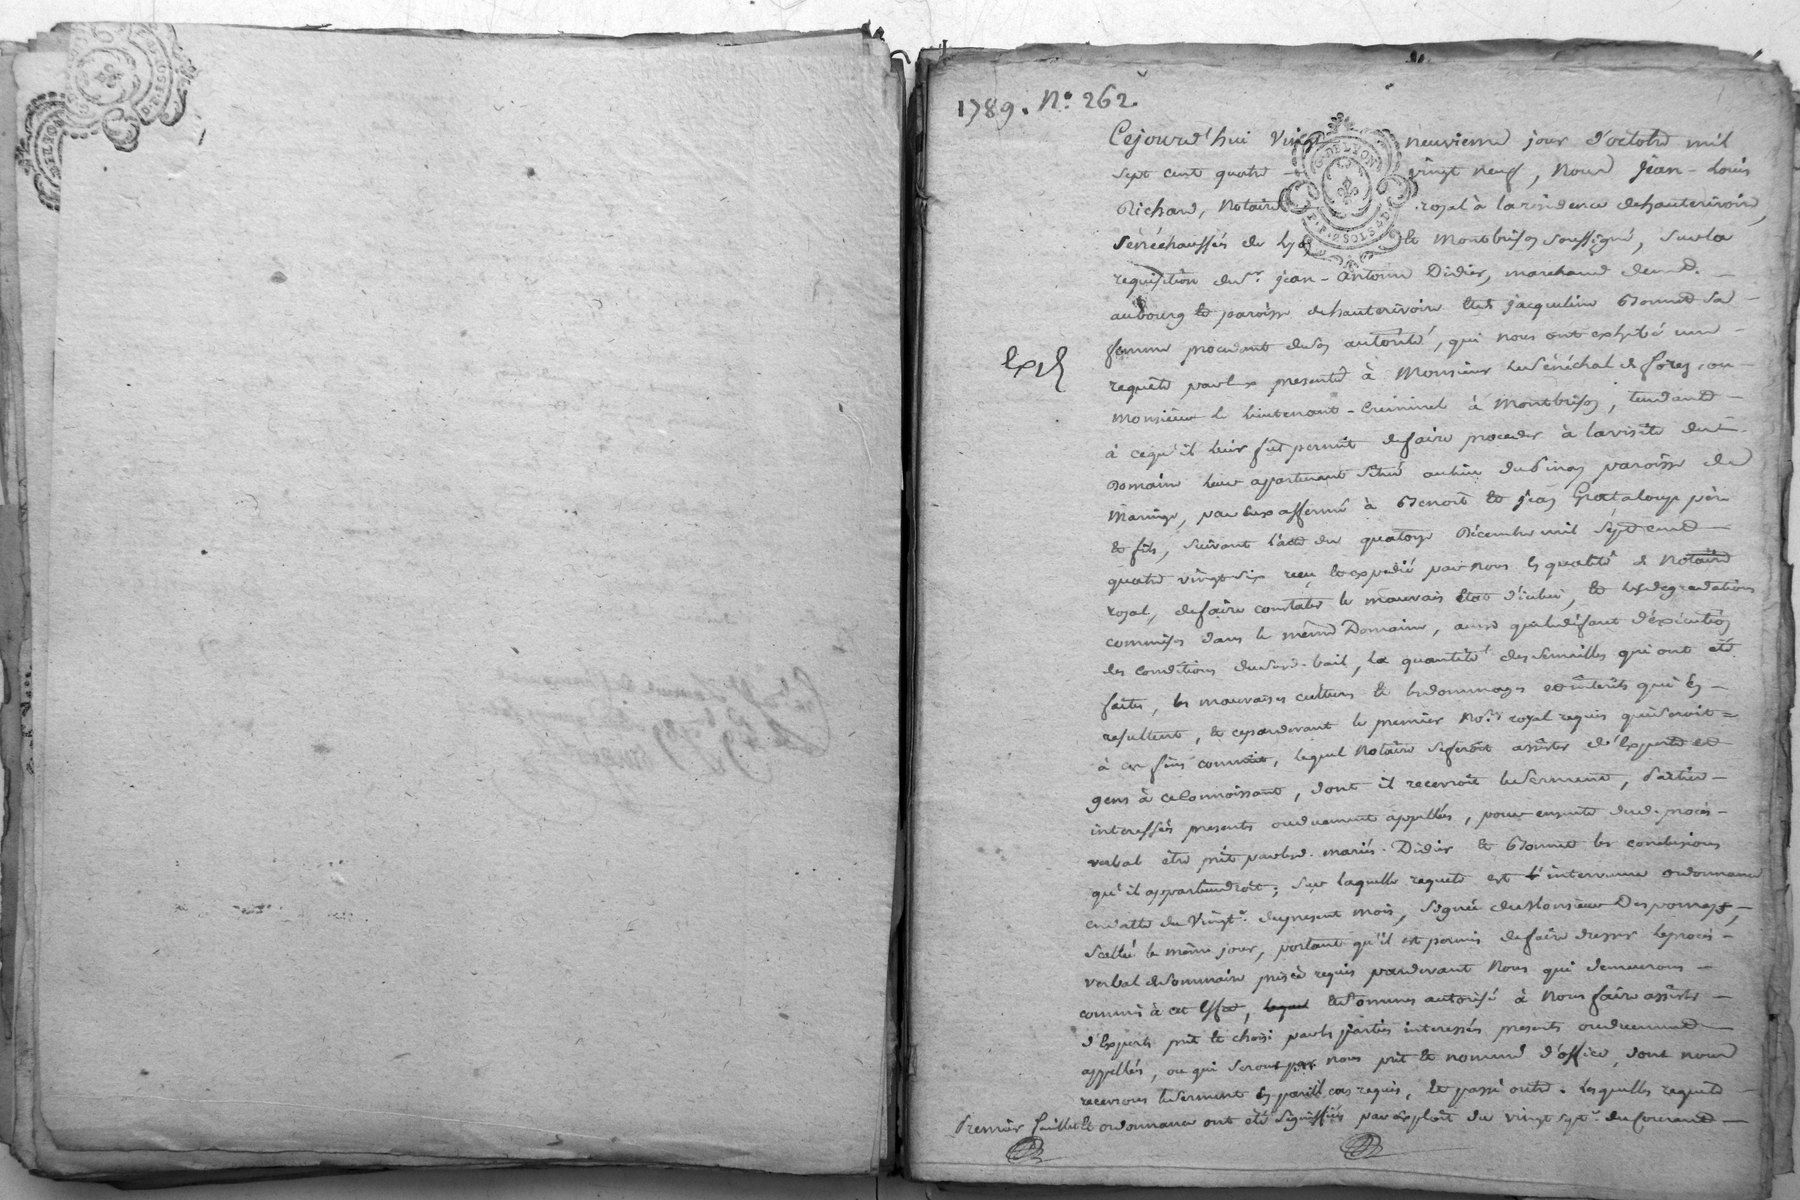 1789. N.º 262.
Cejourd'hui vingt neuvieme jour d'octobre mil
sept cent quatre - vingt neuf, Nous Jean - Louis
Richard, Notaire royal à la résidence de hauterivoire,
Sénéchaussés de Lyon et Montbrison soussigné, sur la
requisition du Sr. Jean - Antoine Didier, marchand dem.t
au bourg et paroisse de hauterivoire et de jacqueline Bonnet sa -
femme procedant de son autorité, qui nous ont exhibé une -
Exp.
requête par eux presentée à Monsieur le Sénéchal de forez, ou -
Monsieur le lieutenant - Criminel à Montbrison, tendante -
à ce qu'il leur fut permit de faire proceder à la visite du -
Domaine leur appartenant situé au lieu du paroisse de
Maringe, par eux affermé à Benoit et Jean Grataloup père
et fils, suivant l'acte du quatorze Décembre mil sept cent -
quatre vingt six reçu et expedié par nous en qualité de Notaire
royal, de faire constater le mauvais état d'icelui, et les degradations
commises dans le même Domaine, ainsi que le défaut d'éxécution
des conditions dud. bail, la quantité des semailles qui ont été
faites, les mauvaises cultures et les dommages et intérêts qui en -
resultent, et ce pardevant le premier No.re royal requis qui seroit =
à ces fins commit, lequel Notaire se feroit assister d'Experts et
gens à ce Connoissant, dont il recevroit le serment, parties -
interessés presents ou duement appellés, pour ensuite dud. procès -
verbal être prit par lesd. mariés Didier et Bonnet les conclusions
qu'il appartiendroit; Sur laquelle requete est intervenue ordonnance
en datte du Vingt du present mois, Signée de Monsieur
Scellé le même jour, portant qu'il est permis de faire dresser le procès -
verbal de Sommaire prisée requis pardevant Nous qui demeurons -
commis à cet effet, et sommes autorisé à Nous faire assister -
d'Experts prit et choisi par les parties interessés presents ou duement -
appellés, ou qui seront par nous prit et nommé d'office, dont nous
recevrons le serment en pareil cas requis, et passé outre. Lesquelles requete
Premier feuillet et ordonnance ont été signiffiés par exploit du vingt sept du courant -